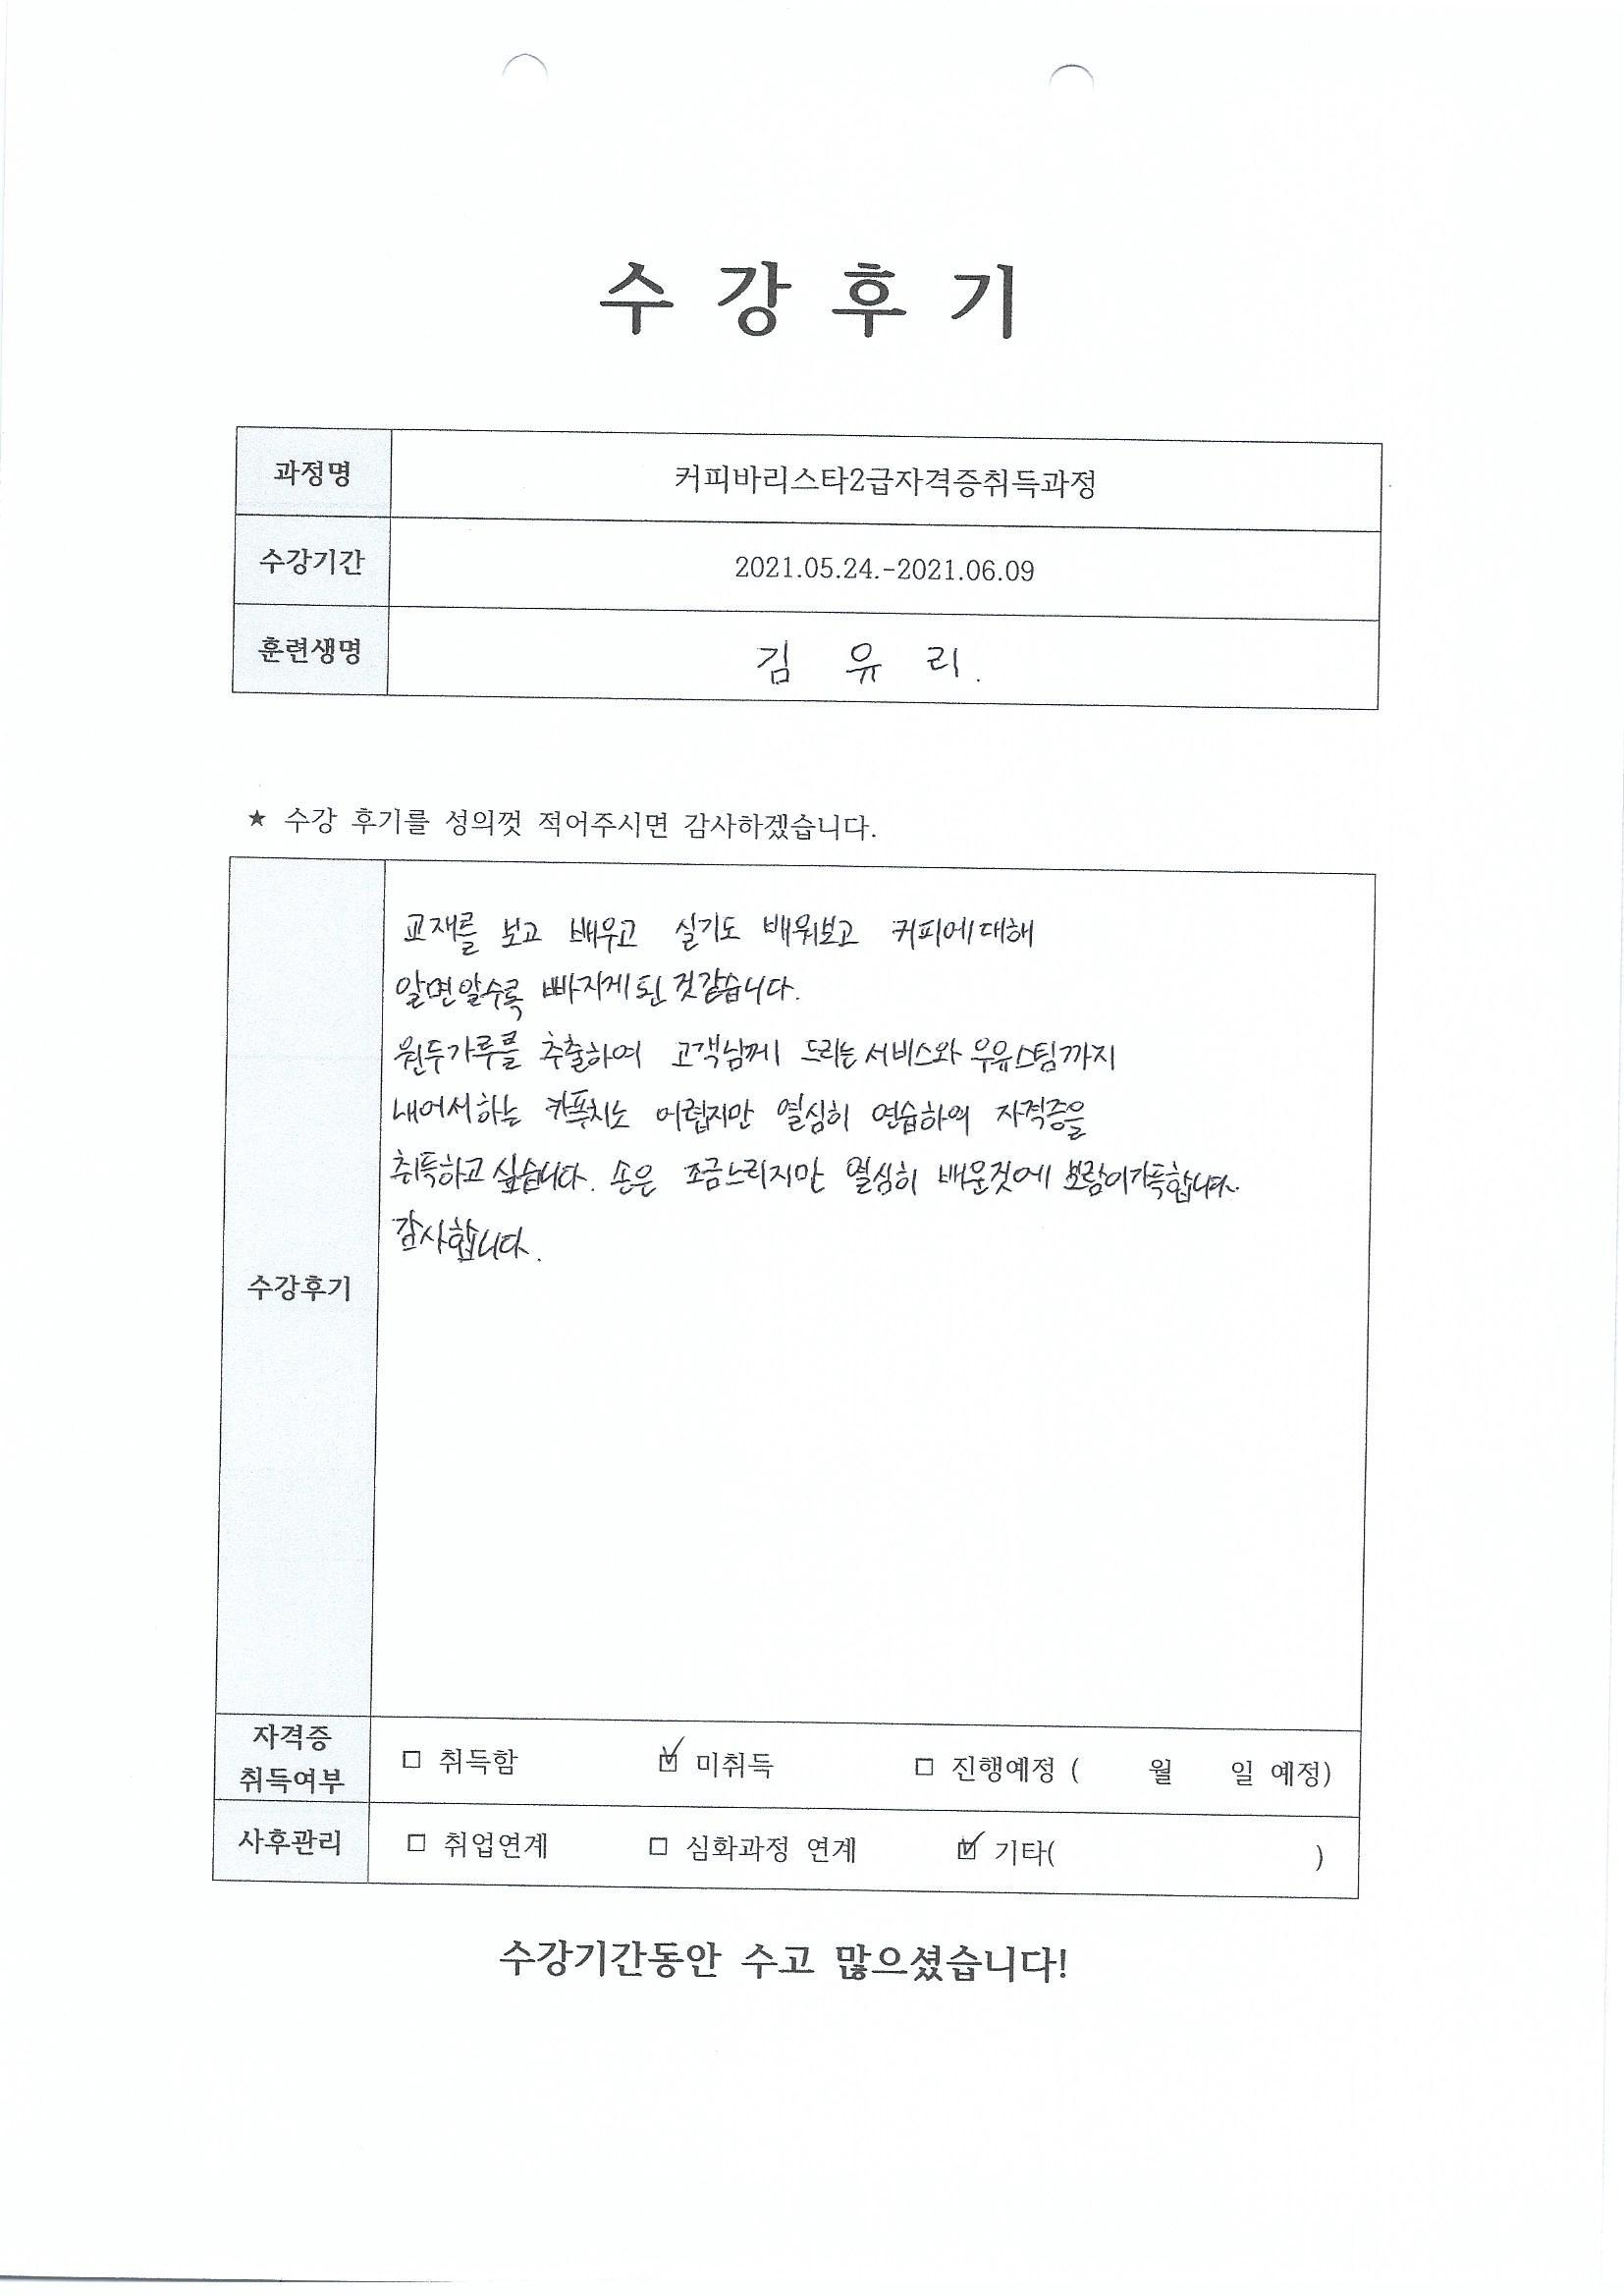 수 강 후 기
과정명 커피바리스타2급자격증취득과정
수강기간 2021.05.24.-2021.06.09
훈련생명 김 유 리.
★ 수강 후기를 성의껏 적어주시면 감사하겠습니다.
교재를 보고 배우고 실기도 배워보고 커피에대해
알면알수록 빠지게된것같습니다.
원두가루를 추출하여 고객님께 드리는서비스와 우유스팀까지
내어서하는 카푸치노 어렵지만 열심히 연습하여 자격증을
취득하고싶습니다. 손은 조금느리지만 열심히 배운것에 보람이가득합니다.
감사합니다.
수강후기
자격증
취득여부
□ 취득함 ☑ 미취득 □ 진행예정 ( 월 일 예정)
사후관리 □ 취업연계 □ 심화과정 연계 ☑ 기타( )
수강기간동안 수고 많으셨습니다!